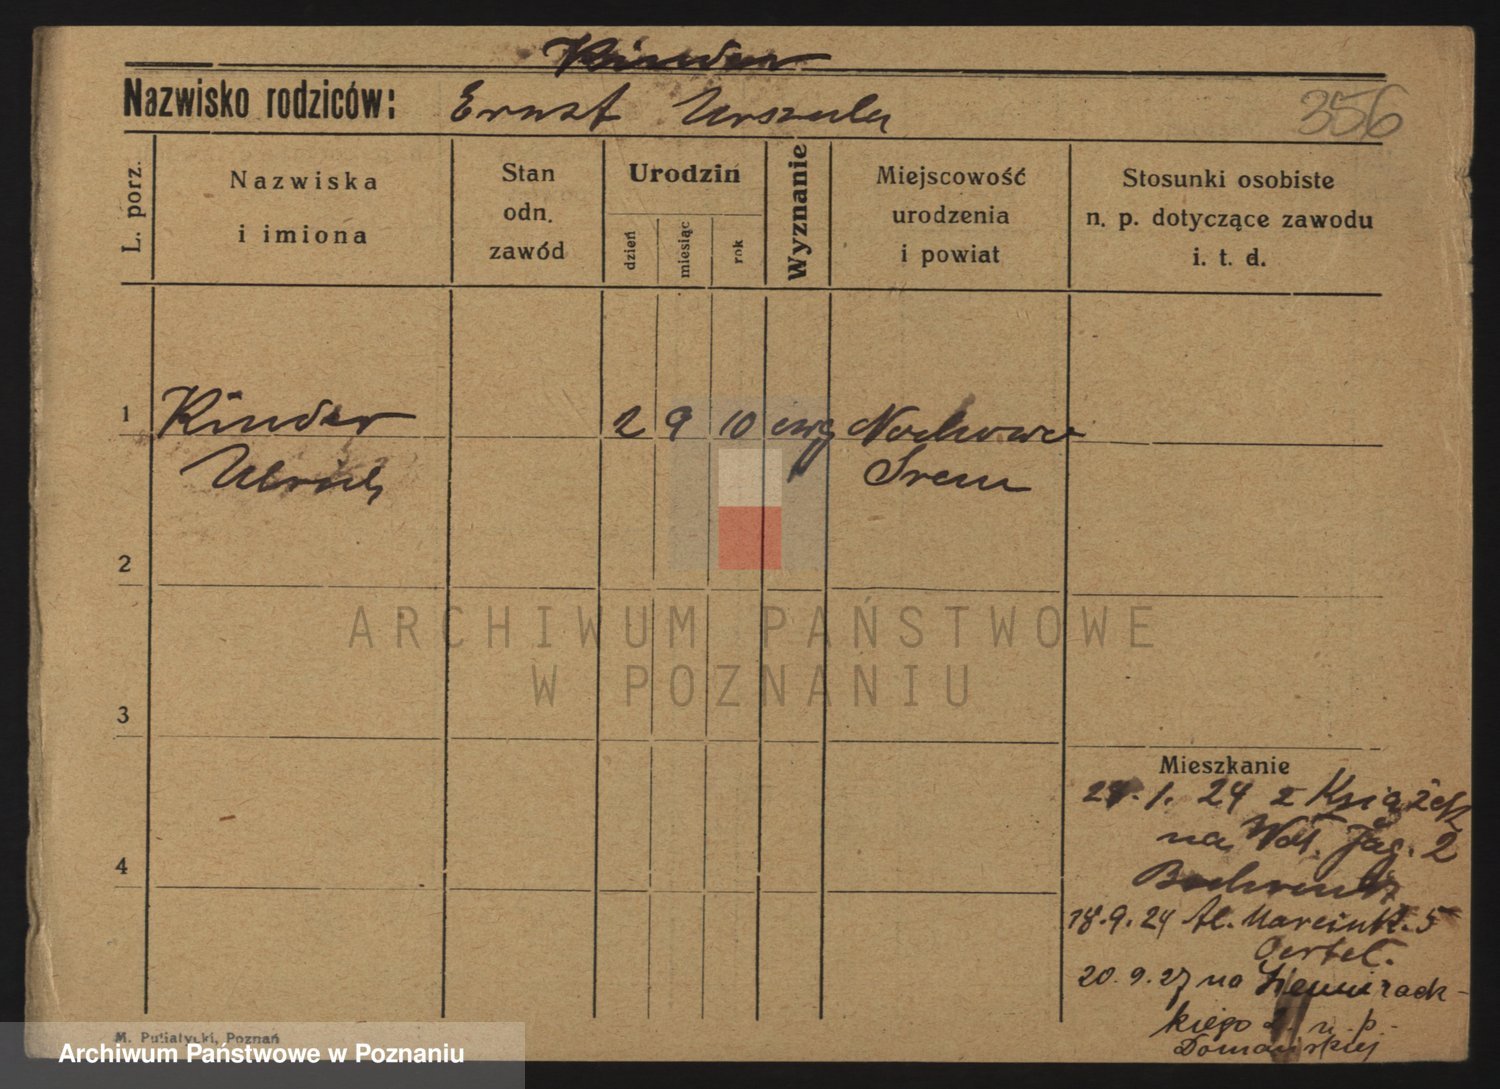 Kinder
Nazwisko rodziców: Ernst Urszula
356
L. porz.
Nazwiska
i imiona
Stan
odn.
zawód
Urodzin
dzień
miesiąc
rok
Wyznanie
Miejscowość
urodzenia
i powiat
Stosunki osobiste
n. p. dotyczące zawodu
i. t. d.
1 Kinder 2 9 10 ewg Nochowo
Ulrich Srem
2
3
4
Mieszkanie
1. 24 z Książek
na Jag. 2
18.9.24 Al. Marcink. 5
Oertel.
20.9.27 na Siemiradz-
kiego n. p.
Domańskiej
M. Putiatycki, Poznań
ARCHIWUM PAŃSTWOWE
W POZNANIU
Archiwum Państwowe w Poznaniu